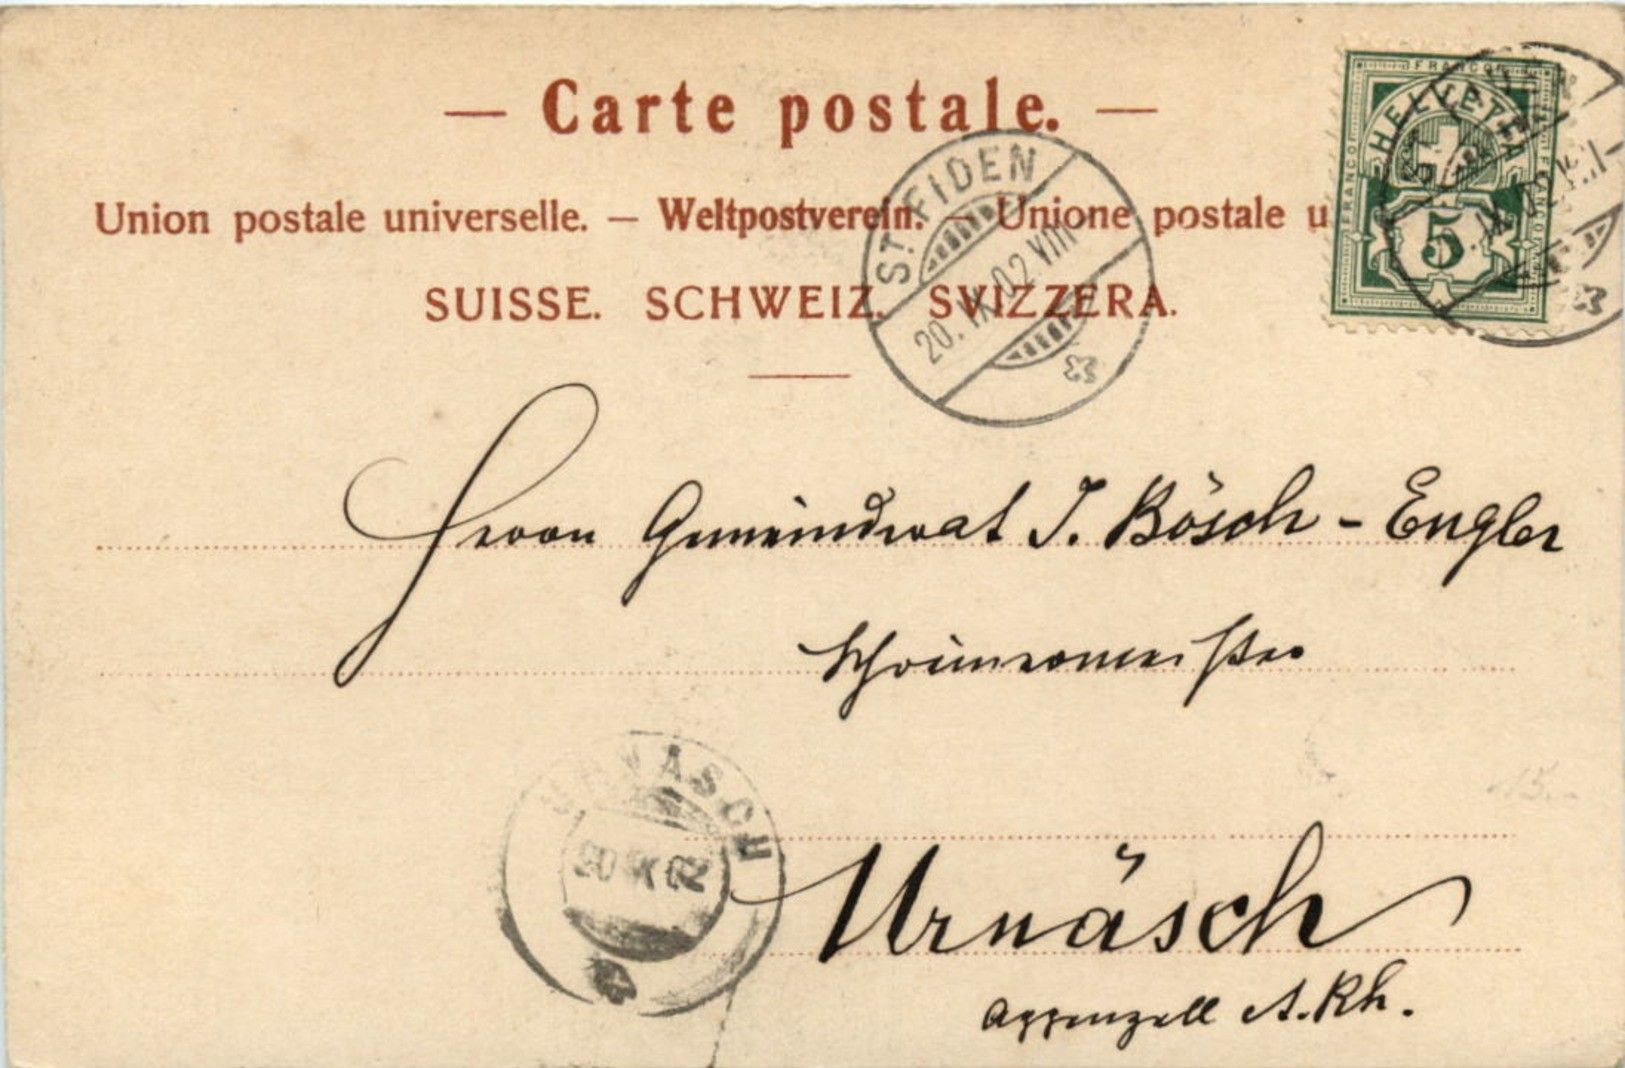 — Carte postale. —
Union postale universelle. — Weltpostverein. — Unione postale u
SUISSE. SCHWEIZ. SVIZZERA.
FRANCO
FRANCO
FRANCO
HELVETIA
5
ST. FIDEN
20. IX. 02. VIII
Herrn Gemeindrat J. Bösch - Engler
Schreinermeister
URNÄSCH
20 IX 02
Urnäsch
Appenzell A. Rh.